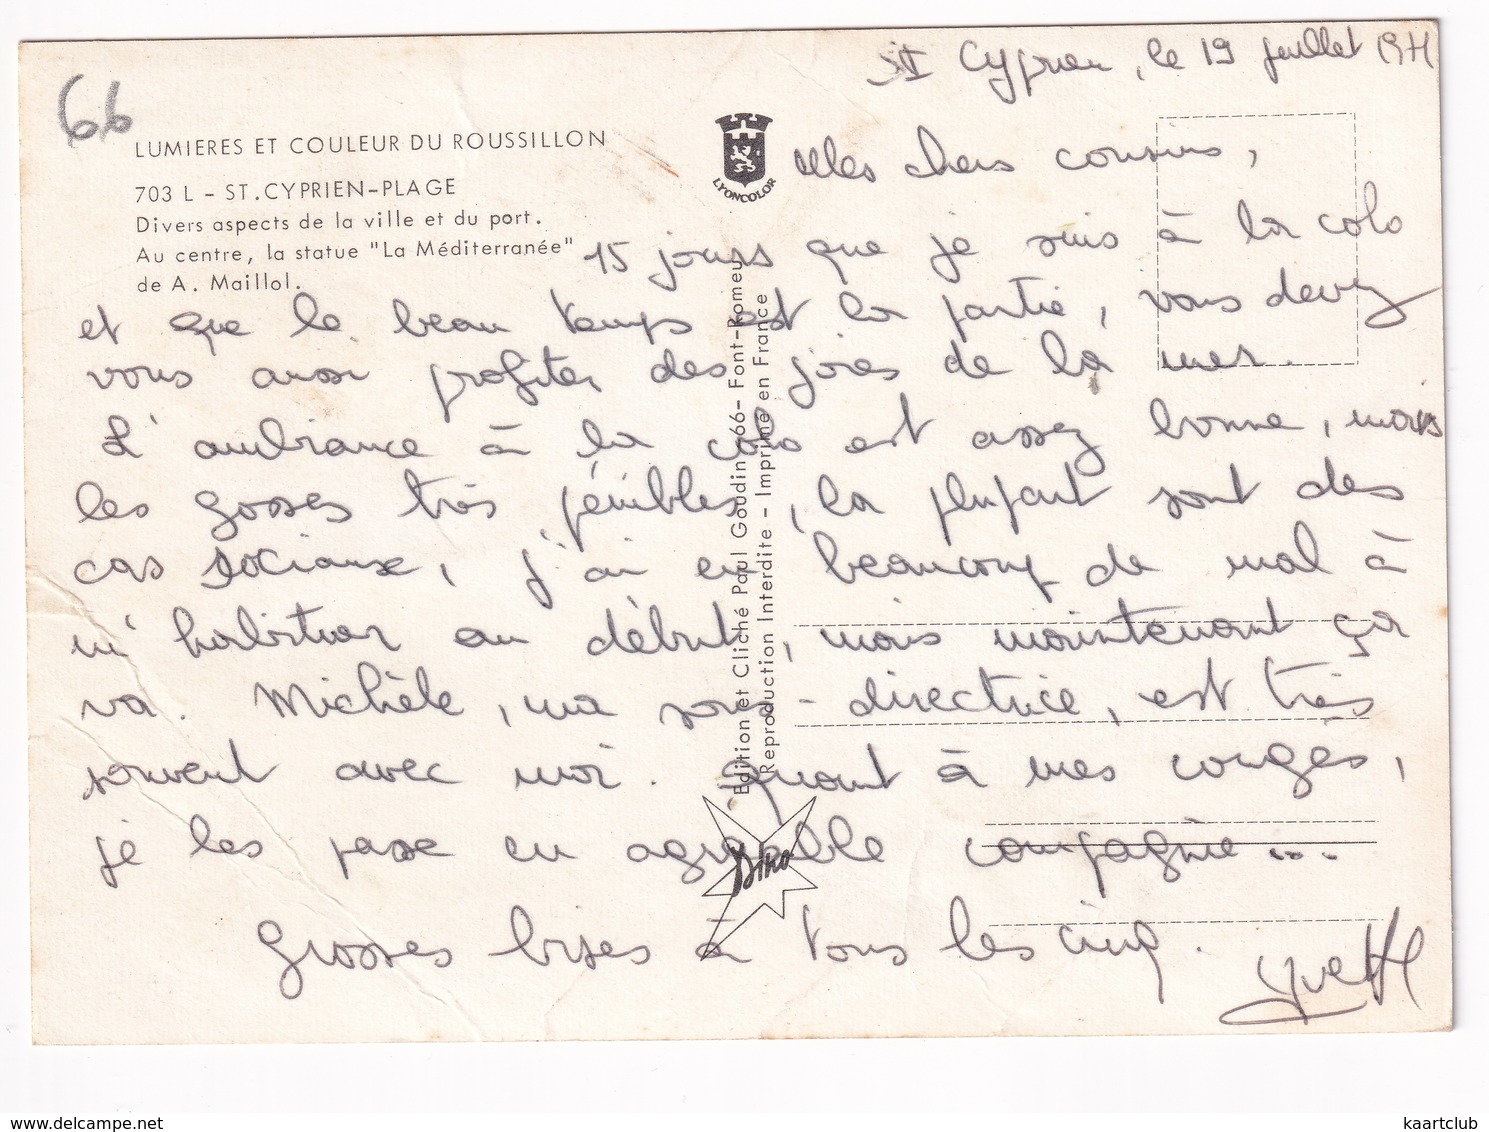 St Cyprien, le 19 juillet 1971
66
LUMIERES ET COULEUR DU ROUSSILLON
703 L - ST.CYPRIEN-PLAGE
Divers aspects de la ville et du port.
Au centre, la statue "La Méditerranée"
de A. Maillol.
LYONCOLOR
Mes chers cousins,
15 jours que je suis à la colo
et que le beau temps est la partie, vous devez
vous aussi profiter des joies de la mer.
L'ambiance à la colo est assez bonne, mais
les gosses très pénibles, la plupart sont des
cas sociaux, j'ai eu beaucoup de mal à
m'habituer au début, mais maintenant ça
va. Michèle, ma sous-directrice, est très
souvent avec moi. Quant à mes congés,
je les passe en agréable compagnie...
Grosses bises à tous les cinq.
Yvette
Edition et Cliché Paul Goudin 66 - Font-Romeu
Reproduction Interdite - Imprimé en France
Dino
www.delcampe.net
kaartclub